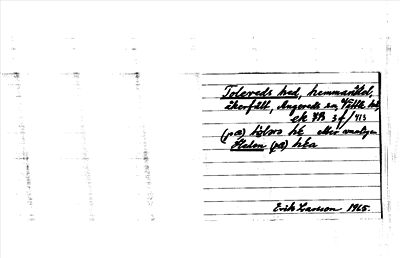 Tolereds hed, hemmansdel,
åkerfält, Angereds sn, Vättle hd,
ek 7B 3f/413
(på) hølva he eller vanligen
Helen (på) hea
Erik Larsson 1965.